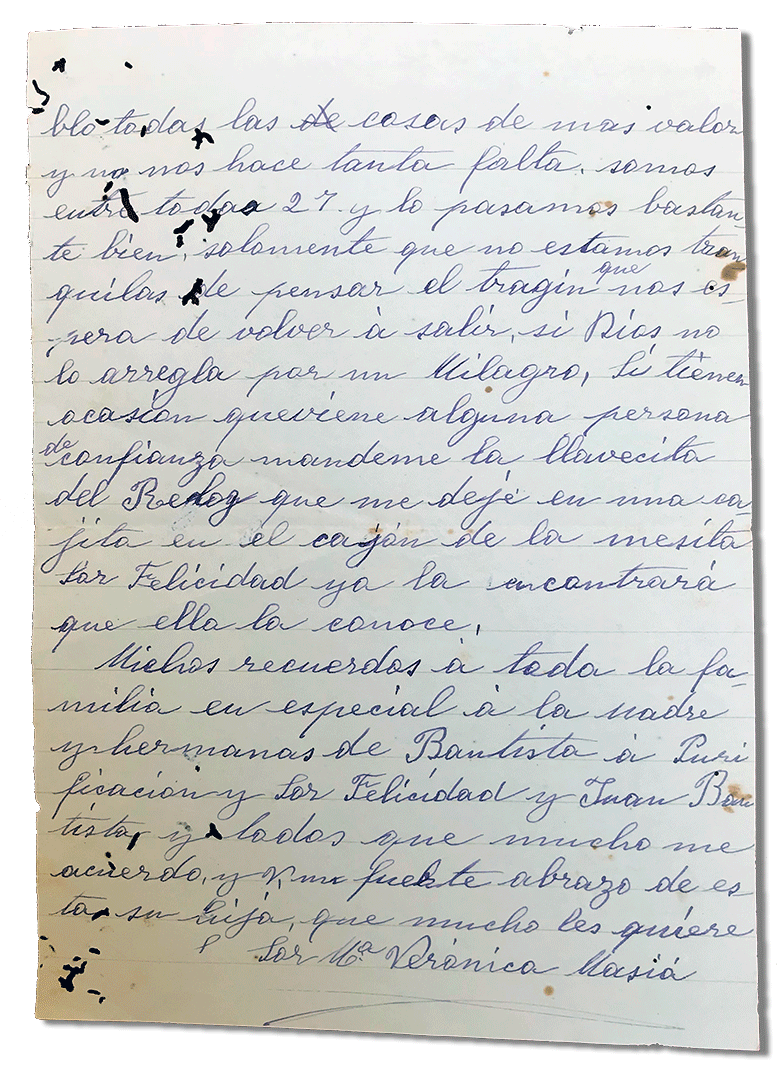 bló todas las de cosas de mas valor
y no nos hace tanta falta. somos
entre todas 27 y lo pasamos bastan-
te bien, solomente que no estamos tran
quilas de pensar el tragin que nos es-
pera de volver à salir, si Dios no
lo arregla por un Milagro, Si tienen
ocasión queviene alguna persona
de confianza mandeme la llavecita
del Relog que me dejé en una ca-
jita en el cajón de la mesita
Sor Felicidad ya la encontrará
que ella la conoce,
Muchos recuerdos à toda la fa-
milia en especial à la madre
y hermanas de Bautista à Puri
ficación y Sor Felicidad y Juan Bau
tista, y todos que mucho me
acuerdo, y V. un fuerte abrazo de es
ta su hija, que mucho les quiere
Sor Mª Verónica Masiá